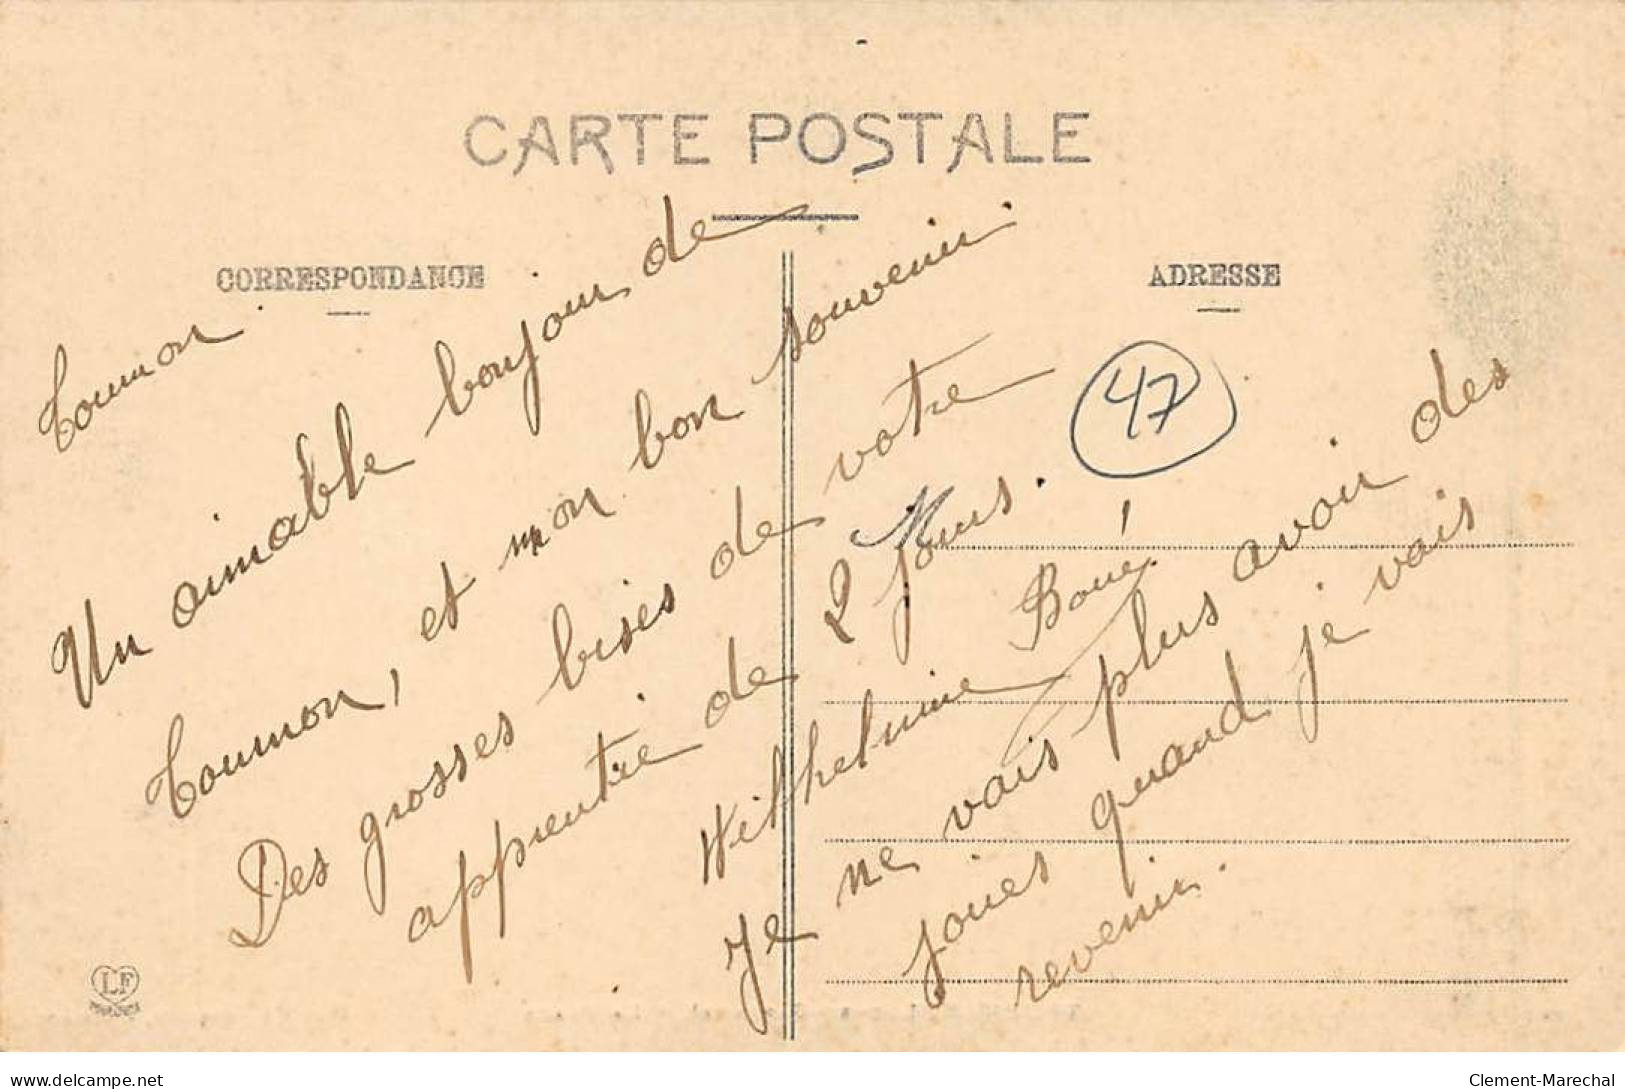 CARTE POSTALE
CORRESPONDANCE
ADRESSE
47
Tournon.
Un aimable bonjour de
Tournon, et mon bon souvenir
Des grosses bises de votre
apprentie de 2 Jours.
Wilhelmine Boué
Je ne vais plus avoir des
joues quand je vais
revenir.
LF
delcampe.net
Clement-Marechal